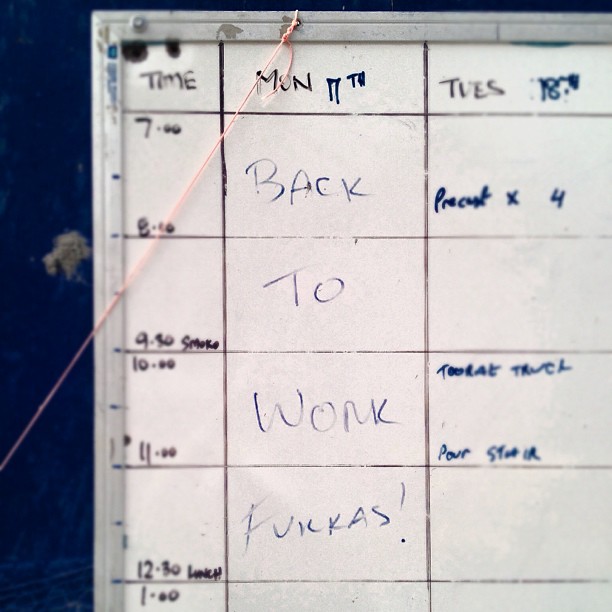 TIME MON 17TH TUES 18TH
7.00
BACK
Precast x 4
8.00
TO
9.30 SMOKO
10.00
TOORAK TRUCK
WORK
11.00
POUR STAIR
FUKKAS!
12.30 LUNCH
1.00